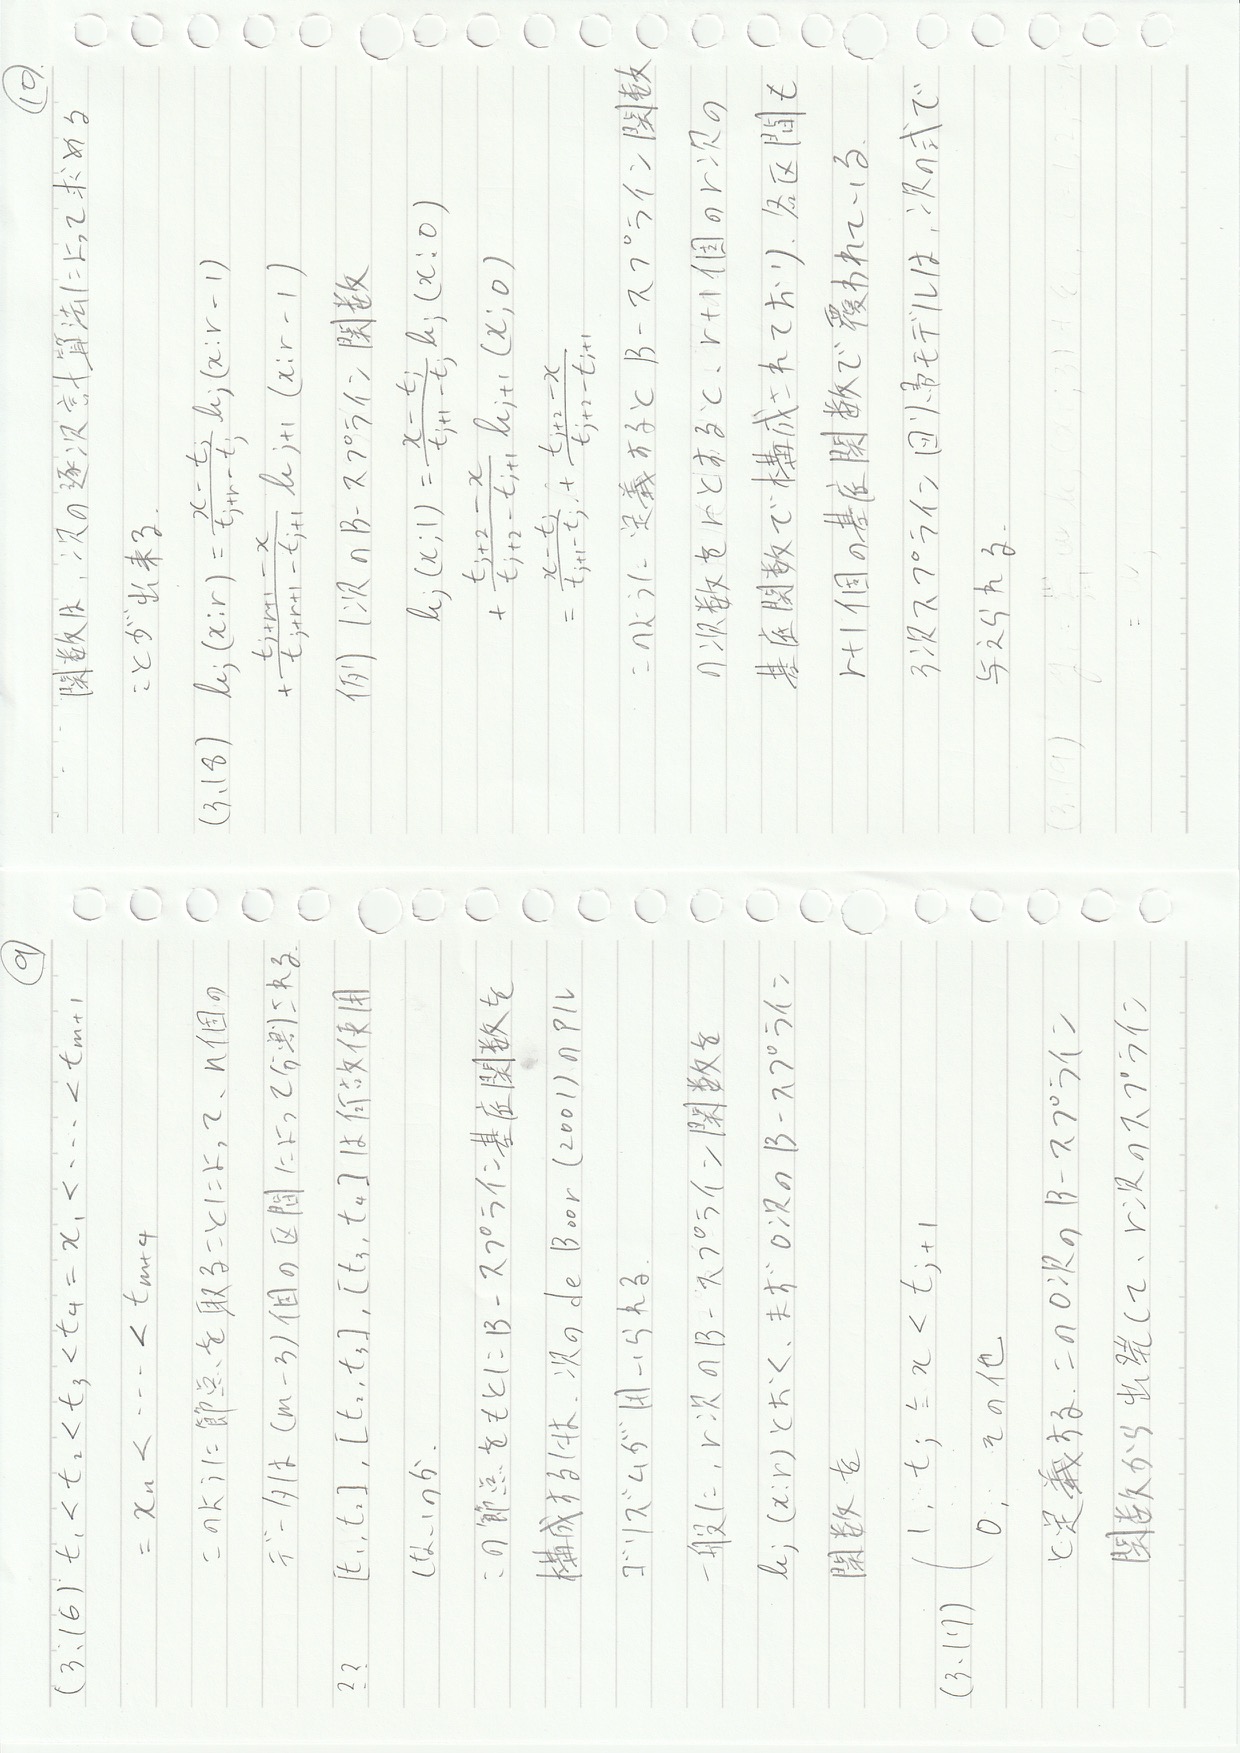 ⑨
(3.16) t₁ < t₂ < t₃ < t₄ = x₁ < ‥‥ < tₘ₊₁
= xₙ < ‥‥ < tₘ₊₄
このように節点を取ることによって、n個の
データは (m-3)個の区間によって分割される.
?? [t₁,t₂], [t₂,t₃], [t₃,t₄]は何故使用
しないのか.
この節点をもとにB-スプライン基底関数を
構成するには、次の de Boor (2001)のアル
ゴリズムが用いられる.
一般に, r次のB-スプライン関数を
bⱼ(x:r)とおく、まず0次のB-スプライン
関数を
1, tⱼ ≦ x < tⱼ₊₁
(3.17)
0, その他
と定義する. この0次のB-スプライン
関数から出発して、r次のスプライン
⑩
関数は, 次の逐次計算法によって求める
ことが出来る.
(3.18) bⱼ(x:r) = (x-tⱼ)/(tⱼ₊ᵣ-tⱼ) bⱼ(x:r-1)
+ (tⱼ₊ᵣ₊₁-x)/(tⱼ₊ᵣ₊₁-tⱼ₊₁) bⱼ₊₁(x:r-1)
例) 1次のB-スプライン関数
bⱼ(x;1) = (x-tⱼ)/(tⱼ₊₁-tⱼ) bⱼ(x:0)
+ (tⱼ₊₂-x)/(tⱼ₊₂-tⱼ₊₁) bⱼ₊₁(x;0)
= (x-tⱼ)/(tⱼ₊₁-tⱼ) + (tⱼ₊₂-x)/(tⱼ₊₂-tⱼ₊₁)
このように定義するとB-スプライン関数
の次数をrとすると、r+1個のr次の
基底関数で構成されており、各区間も
r+1個の基底関数で覆われている.
3次スプライン回帰モデルは, 次の式で
与えられる.
(3.19)